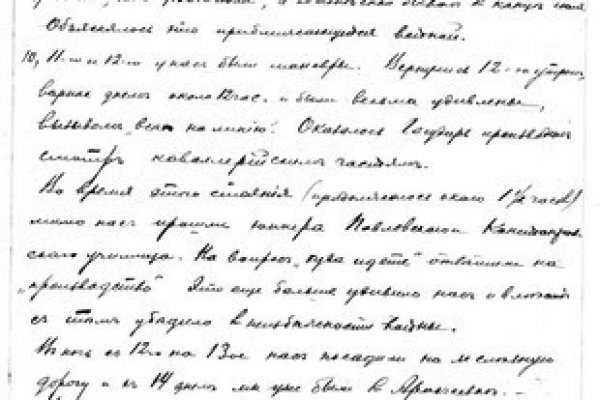 Объяснялось это приближающейся войной.
10, 11-го и 12-го у нас были маневры. Вернулись 12-го утром,
вернее днем около 12 час. и были весьма удивлены,
вызовом „всех на линию". Оказалось Государь производил
смотр кавалерийским частям.
Во время этого стояния (продолжалось около 1½ часов)
мимо нас прошли юнкера Павловского
училища. На вопрос „куда идете" отвечали на
„производство" Это еще больше удивило нас и
с тем убедило в неизбежности войны.
В ночь с 12го на 13ое нас посадили на железную
дорогу и 14 днем мы уже были в